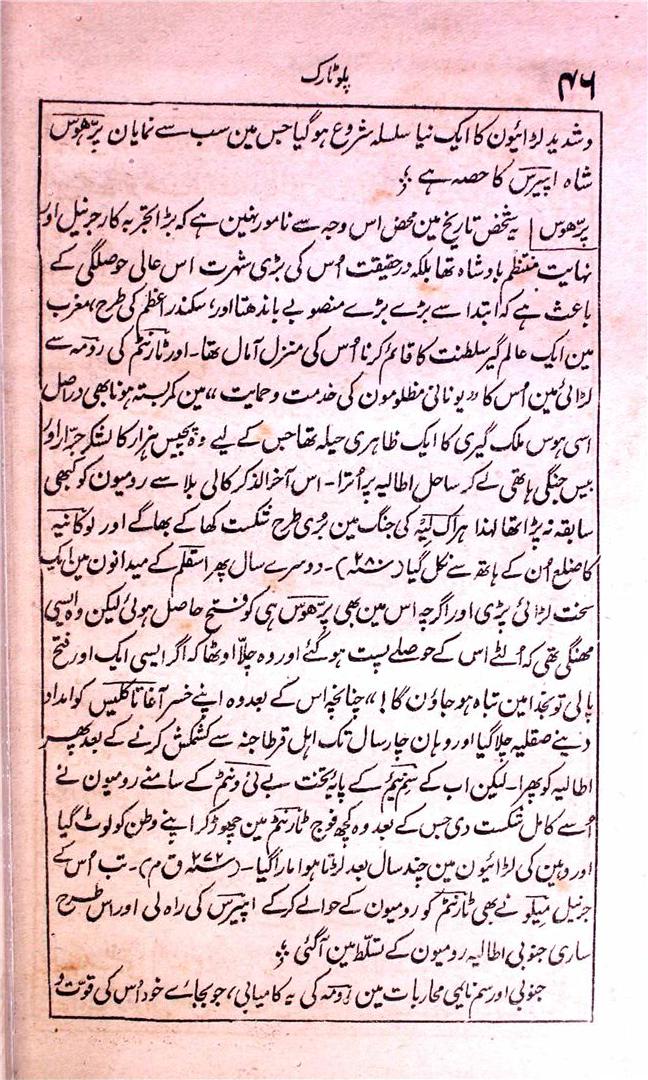 ۴۶
پلوٹارک
و شدید لڑائیون کا ایک نیا سلسلہ شروع ہو گیا جس مین سب سے نمایان پرّھوس
شاہ اپیرس کا حصہ ہے ؛
پرّھوس یہ شخص تاریخ مین محض اس وجہ سے نامور نہین ہے کہ بڑا تجربہ کار جرنیل اور
نہایت منتظم بادشاہ تھا بلکہ درحقیقت اُس کی بڑی شہرت اس عالی حوصلگی کے
باعث ہے کہ ابتدا سے بڑے بڑے منصوبے باندھتا اور، سکندر اعظم کی طرح، مغرب
مین ایک عالم گیر سلطنت کا قائم کرنا اُس کی منزل آمال تھا۔ اور ٹارنٹم کی رومہ سے
لڑائی مین اُس کا "یونانی مظلومون کی خدمت و حمایت" مین کمر بستہ ہونا بھی دراصل
اسی ہوس ملک گیری کا ایک ظاہری حیلہ تھا جس کے لیے وہ پچیس ہزار کا لشکر جرّار اور
بیس جنگی ہاتھی لے کر ساحل اطالیہ پر اُترا۔ اس آخر الذکر کالی بلا سے رومیون کو کبھی
سابقہ نہ پڑا تھا لہذا ہراک لیۂ کی جنگ مین بُری طرح شکست کھا کے بھاگے اور لوکانیہ
کا ضلع اُن کے ہاتھ سے نکل گیا (سنہ ۲۸۰)۔ دوسرے سال پھر اسقلم کے میدانون مین ایک
سخت لڑائی پڑی اور اگرچہ اس مین بھی پرّھوس ہی کو فتح حاصل ہوئی لیکن وہ ایسی
مھنگی تھی کہ اُلٹے اس کے حوصلے پست ہو گئے اور وہ چلّا اوٹھا کہ اگر ایسی ایک اور فتح
پالی تو بخدا مین تباہ ہو جاؤن گا!" چنانچہ اس کے بعد وہ اپنے خسر آغاتاکلیس کو امداد
دینے صقلیہ چلا گیا اور وہان چار سال تک اہل قرطاجنہ سے کشمکش کرنے کے بعد پھر
اطالیہ کو پھرا۔ لیکن اب کے سم نیم کے پایۂ تخت بے نی ونٹم کے سامنے رومیون نے
اُسے کامل شکست دی جس کے بعد وہ کچھ فوج ٹارنٹم مین چھوڑ کر اپنے وطن کو لوٹ گیا
اور وہین کی لڑائیون مین چند سال بعد لڑتا ہوا مارا گیا۔ (سنہ ۲۷۲ ق م)۔ تب اُس کے
جرنیل میلو نے بھی ٹارنٹم کو رومیون کے حوالے کر کے اپیرس کی راہ لی اور اس طرح
ساری جنوبی اطالیہ رومیون کے تسلّط مین آگئی ؛
جنوبی اور سم نایمی محاربات مین رومہ کی یہ کامیابی، جو بجاے خود اُس کی قوت و